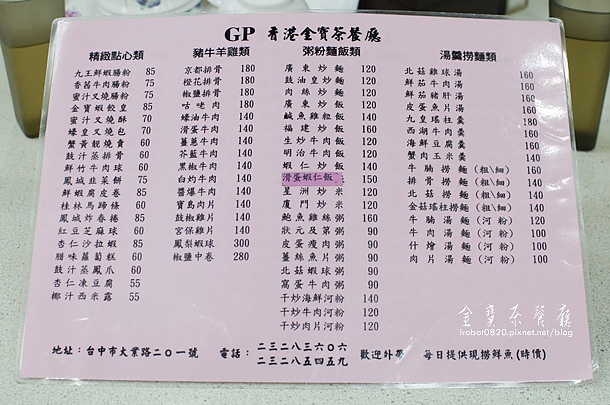 GP 香港金寶茶餐廳
精緻點心類
九王鮮蝦腸粉 85
香茜牛肉腸粉 75
蜜汁叉燒腸粉 75
金寶蝦餃皇 85
蜜汁叉燒酥 70
蠔皇叉燒包 70
蟹黃靚燒賣 60
鼓汁蒸排骨 60
鮮竹牛肉球 60
鳳城韭菜餅 75
鮮蝦腐皮卷 85
桂林馬蹄條 60
鳳城炸春捲 85
紅豆芝麻球 60
杏仁沙拉蝦 85
腊味蘿蔔糕 60
鼓汁蒸鳳爪 60
杏仁凍豆腐 55
椰汁西米露 55
豬牛羊雞類
京都排骨 180
橙花排骨 180
椒鹽排骨 180
咕咾肉 180
蠔油牛肉 140
滑蛋牛肉 140
薑蔥牛肉 140
芥藍牛肉 140
黑椒牛肉 140
台灼牛肉 140
醬爆牛肉 140
寶島肉片 140
鼓椒雞片 140
宮保雞片 140
鳳梨蝦球 300
椒鹽中卷 280
粥粉麵飯類
廣東炒麵 120
鼓油皇炒麵 120
肉絲炒麵 120
廣東炒飯 120
鹹魚雞粒飯 140
福建炒飯 160
生炒牛肉飯 120
明治牛肉飯 120
蝦仁炒飯 140
滑蛋蝦仁飯 150
星洲炒米 120
廈門炒米 120
鮑魚雞絲粥 160
狀元及第粥 90
皮蛋瘦肉粥 90
薑絲魚片粥 90
北菇蝦球粥 90
窩蛋牛肉粥 90
干炒海鮮河粉 140
干炒牛肉河粉 120
干炒肉片河粉 120
湯羹撈麵類
北菇雞球湯 160
鮮茄牛肉湯 160
鮮茄豬肝湯 160
皮蛋魚片湯 160
九皇瑤柱羹 160
西湖牛肉羹 160
海鮮豆腐羹 160
蟹肉玉米羹 160
牛腩撈麵(粗\細) 160
排骨撈麵(粗\細) 160
北菇撈麵(粗\細) 140
金菇瑤柱撈麵(粗\細) 140
牛腩湯麵(河粉) 120
牛肉湯麵(河粉) 100
什燴湯麵(河粉) 100
肉片湯麵(河粉) 100
地址：台中市大業路二0一號 電話：二三二八三六0六
二三二八五四五九 歡迎外帶 每日提供現撈鮮魚(時價)
金寶茶餐廳
irobot0820.pixnet.net/blog